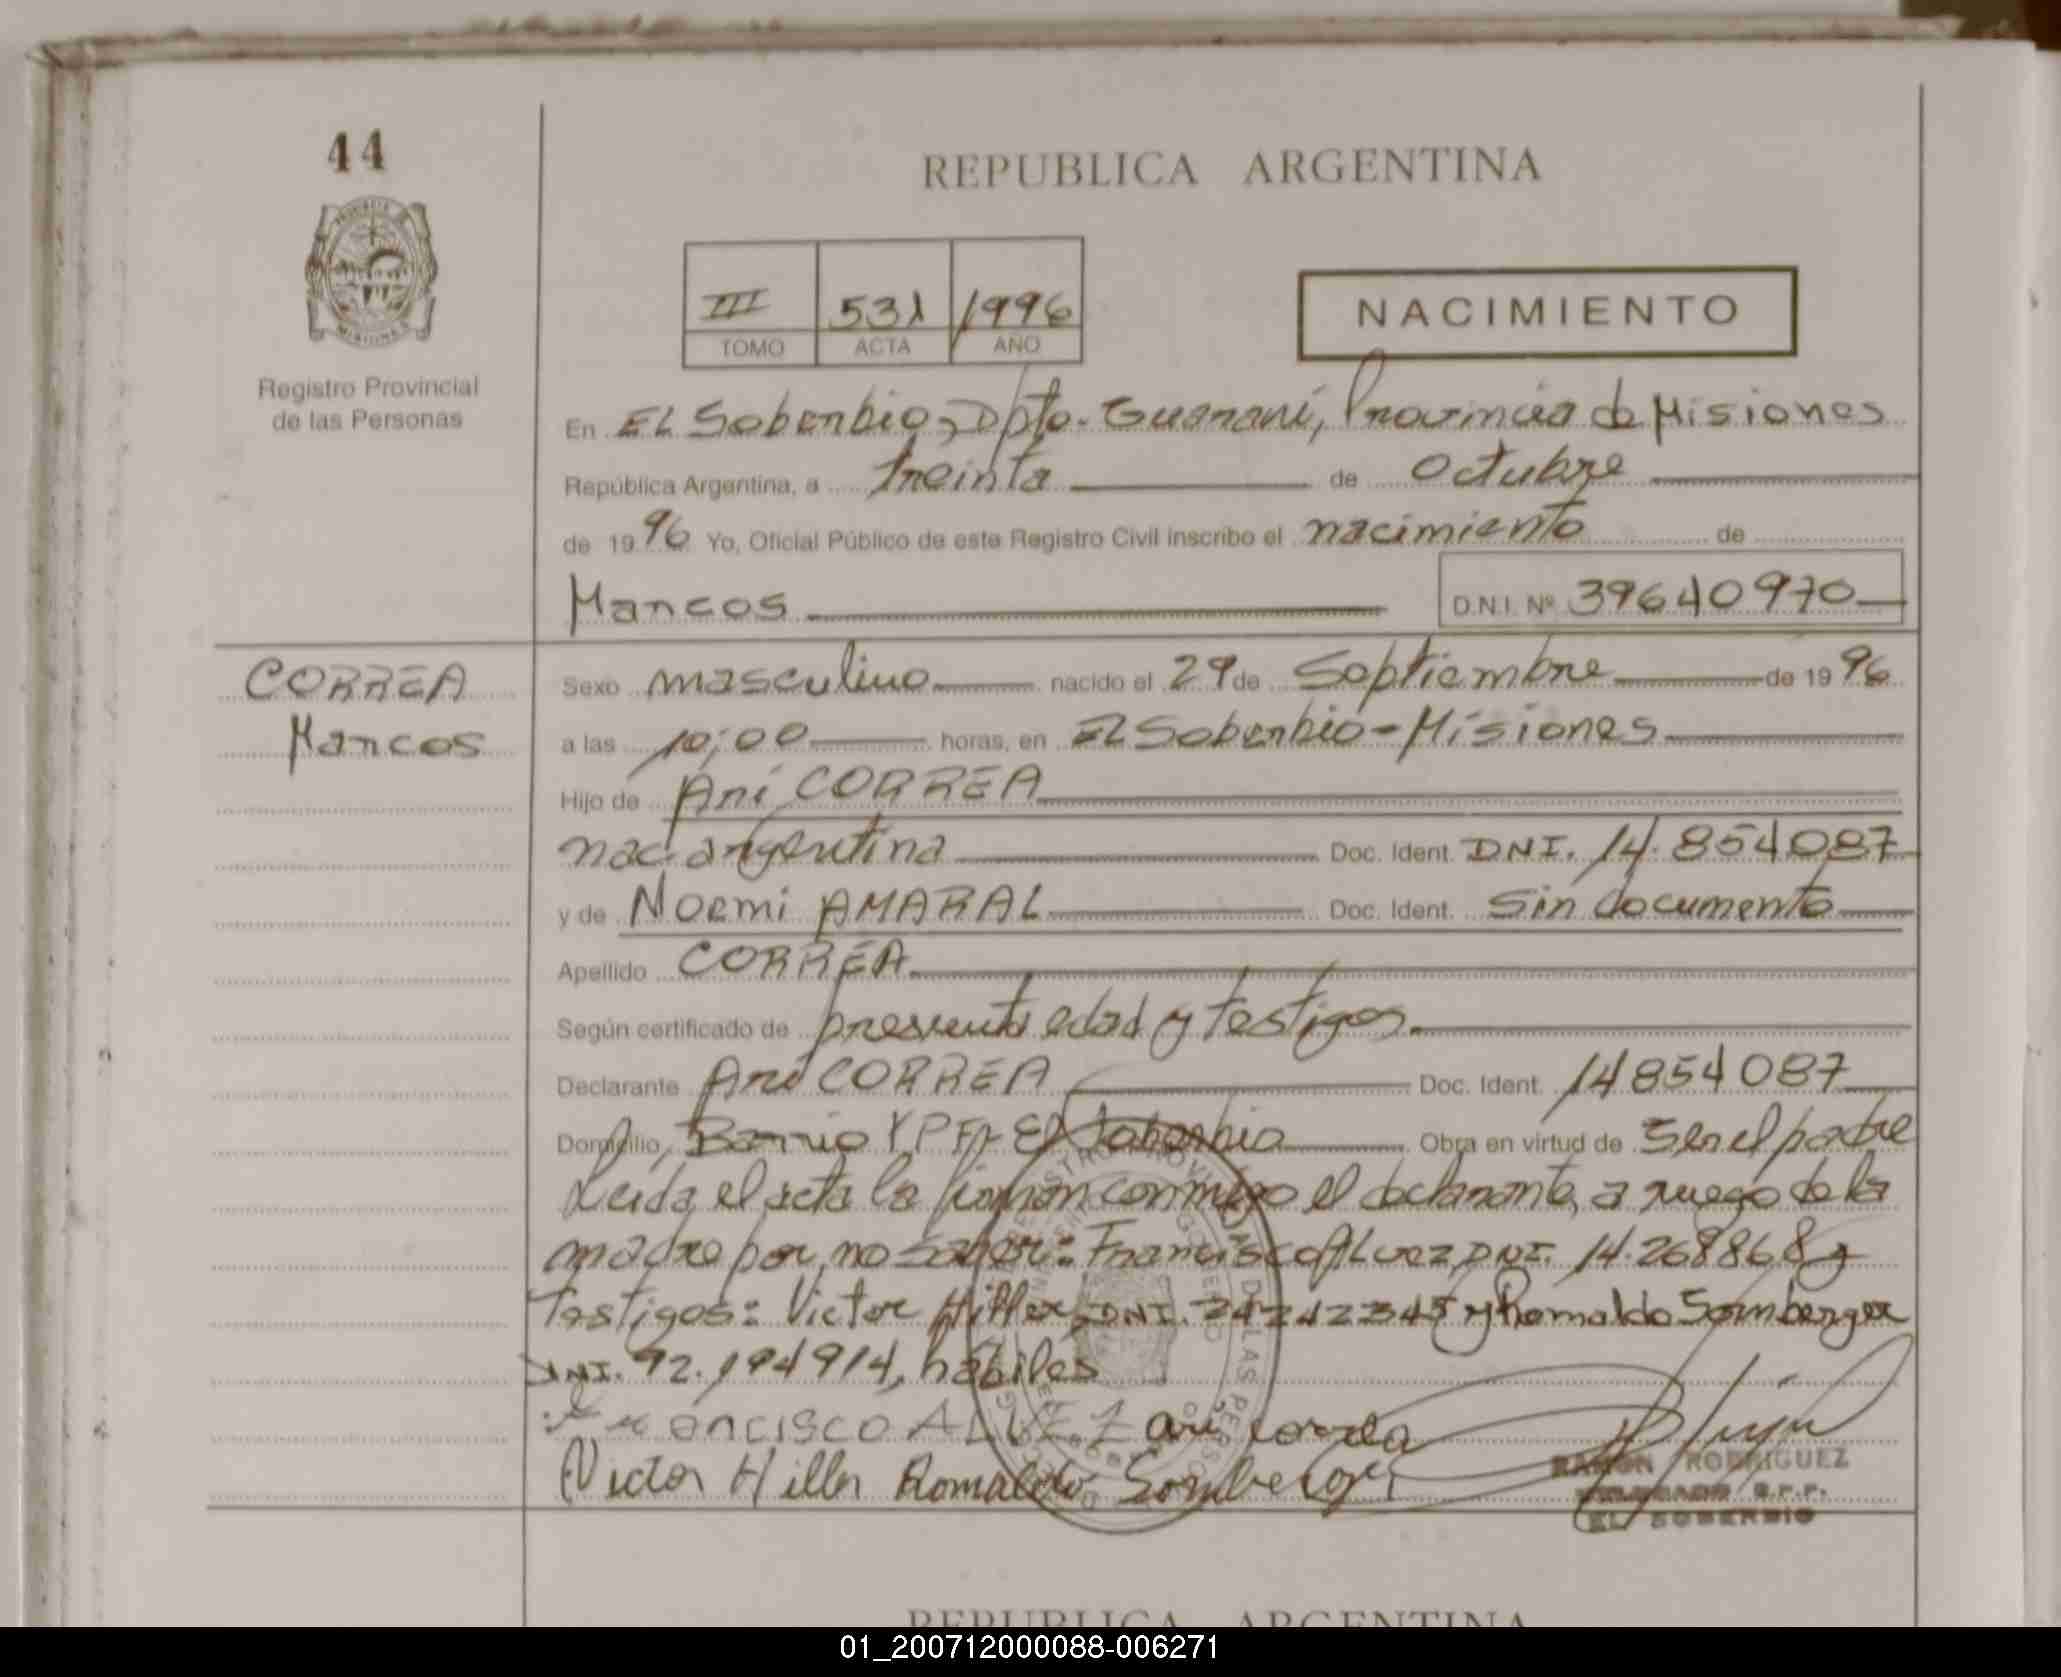 44
REPUBLICA ARGENTINA
III 531 1996
TOMO ACTA AÑO
NACIMIENTO
Registro Provincial
de las Personas
En El Soberbio, Dpto. Guaraní, Provincia de Misiones
República Argentina, a treinta de Octubre
de 1996 Yo, Oficial Público de este Registro Civil inscribo el nacimiento de
Marcos D.N.I. Nº 39640970
CORREA
Marcos
Sexo masculino nacido el 29 de Septiembre de 1996
a las 10;00 horas, en El Soberbio - Misiones
Hijo de Ari CORREA
nac. argentina Doc. Ident. DNI. 14.854087
y de Noemi AMARAL Doc. Ident. Sin documento
Apellido CORREA
Según certificado de presunta edad y testigos
Declarante Ari CORREA Doc. Ident. 14854087
Domicilio, Barrio YPF, El Soberbio Obra en virtud de Ser el padre
Leida el acta la firman conmigo el declarante, a ruego de la
madre por no saber: Francisco Alvez, DNI. 14.268868 y
Testigos: Victor Hiller, DNI. 24242345 y Romaldo Somberger
DNI. 92.194914, hábiles
Francisco ALVEZ ari correa
Victor Hiller Romaldo Somberger
RAMON RODRIGUEZ
DELEGADO R.P.P.
EL SOBERBIO
REPUBLICA ARGENTINA
01_200712000088-006271